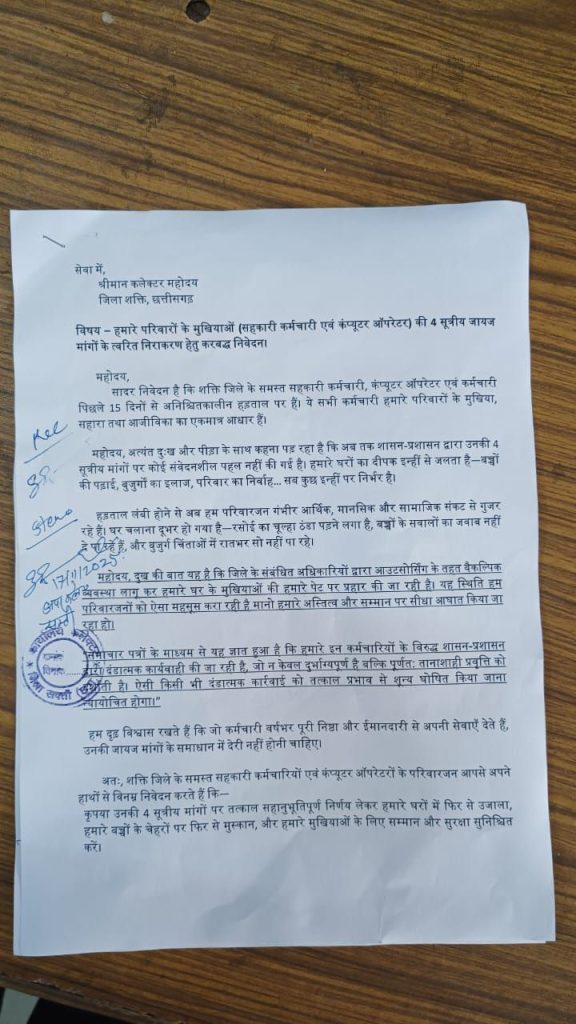 सेवा में,
श्रीमान कलेक्टर महोदय
जिला शक्ति, छत्तीसगढ़
विषय – हमारे परिवारों के मुखियाओं (सहकारी कर्मचारी एवं कंप्यूटर ऑपरेटर) की 4 सूत्रीय जायज
मांगों के त्वरित निराकरण हेतु करबद्ध निवेदन।
महोदय,
सादर निवेदन है कि शक्ति जिले के समस्त सहकारी कर्मचारी, कंप्यूटर ऑपरेटर एवं कर्मचारी
पिछले 15 दिनों से अनिश्चितकालीन हड़ताल पर हैं। ये सभी कर्मचारी हमारे परिवारों के मुखिया,
सहारा तथा आजीविका का एकमात्र आधार हैं।
महोदय, अत्यंत दुःख और पीड़ा के साथ कहना पड़ रहा है कि अब तक शासन-प्रशासन द्वारा उनकी 4
सूत्रीय मांगों पर कोई संवेदनशील पहल नहीं की गई है। हमारे घरों का दीपक इन्हीं से जलता है—बच्चों
की पढ़ाई, बुजुर्गों का इलाज, परिवार का निर्वाह... सब कुछ इन्हीं पर निर्भर है।
हड़ताल लंबी होने से अब हम परिवारजन गंभीर आर्थिक, मानसिक और सामाजिक संकट से गुजर
रहे हैं। घर चलाना दूभर हो गया है—रसोई का चूल्हा ठंडा पड़ने लगा है, बच्चों के सवालों का जवाब नहीं
दे पा रहे हैं, और बुजुर्ग चिंताओं में रातभर सो नहीं पा रहे।
महोदय, दुख की बात यह है कि जिले के संबंधित अधिकारियों द्वारा आउटसोर्सिंग के तहत वैकल्पिक
व्यवस्था लागू कर हमारे घर के मुखियाओं की हमारे पेट पर प्रहार की जा रही है। यह स्थिति हम
परिवारजनों को ऐसा महसूस करा रही है मानो हमारे अस्तित्व और सम्मान पर सीधा आघात किया जा
रहा हो।
"समाचार पत्रों के माध्यम से यह ज्ञात हुआ है कि हमारे इन कर्मचारियों के विरुद्ध शासन-प्रशासन
द्वारा दंडात्मक कार्यवाही की जा रही है, जो न केवल दुर्भाग्यपूर्ण है बल्कि पूर्णतः तानाशाही प्रवृत्ति को
दर्शाती है। ऐसी किसी भी दंडात्मक कार्रवाई को तत्काल प्रभाव से शून्य घोषित किया जाना
न्यायोचित होगा।"
हम दृढ़ विश्वास रखते हैं कि जो कर्मचारी वर्षभर पूरी निष्ठा और ईमानदारी से अपनी सेवाएँ देते हैं,
उनकी जायज मांगों के समाधान में देरी नहीं होनी चाहिए।
अतः, शक्ति जिले के समस्त सहकारी कर्मचारियों एवं कंप्यूटर ऑपरेटरों के परिवारजन आपसे अपने
हाथों से विनम्र निवेदन करते हैं कि—
कृपया उनकी 4 सूत्रीय मांगों पर तत्काल सहानुभूतिपूर्ण निर्णय लेकर हमारे घरों में फिर से उजाला,
हमारे बच्चों के चेहरों पर फिर से मुस्कान, और हमारे मुखियाओं के लिए सम्मान और सुरक्षा सुनिश्चित
करें।
Rec
Steno
17/11/2025
कार्यालय कलेक्टर
दिनांक
जिला सक्ती